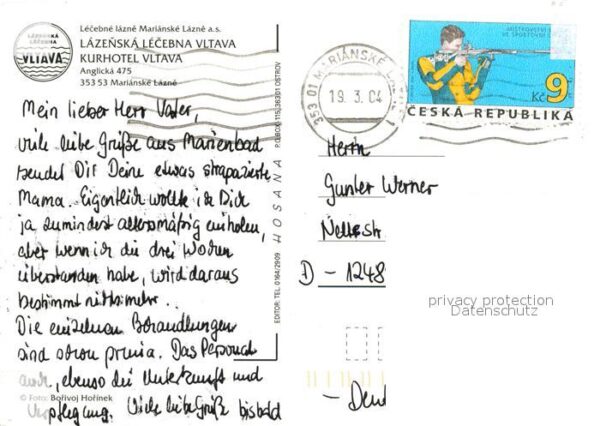 LÁZEŇSKÁ
LÉČEBNA
VLTAVA
Léčebné lázně Mariánské Lázně a.s.
LÁZEŇSKÁ LÉČEBNA VLTAVA
KURHOTEL VLTAVA
Anglická 475
353 53 Mariánské Lázně
Mein lieber Herr Vater,
viele liebe Grüße aus Marienbad
sendet Dir Deine etwas strapazierte
Mama. Eigentlich wollte ich Dich
ja zumindest altersmäßig einholen,
aber wenn ich die drei Wochen
überstanden habe, wird daraus
bestimmt nichts mehr..
Die einzelnen Behandlungen
sind schon prima. Das Personal
auch, ebenso die Unterkunft und
Verpflegung. Viele liebe Grüße bis bald
© Foto: Bořivoj Hořínek
EDITOR: TEL. 0164/2909 HOSANA P.O.BOX 115, 36301 OSTROV
353 01 MARIÁNSKÉ LÁZNĚ 1
19. 3. 04
MISTROVSTVÍ
VE SPORTOVNÍ
Kč 9
ČESKÁ REPUBLIKA
Herrn
Gunter Werner
D - 1248
- Deut
privacy protection
Datenschutz